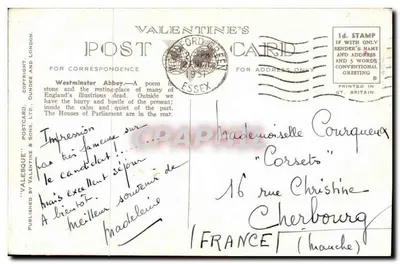 VALENTINE'S
POST CARD
FOR CORRESPONDENCE
FOR ADDRESS ONLY
1d. STAMP
IF WITH ONLY
SENDER'S NAME
AND ADDRESS
AND 5 WORDS
CONVENTIONAL
GREETING
PRINTED IN
GT. BRITAIN
ESSEX
Westminster Abbey.—A poem in
stone and the resting-place of many of
England's illustrious dead. Outside we
have the hurry and bustle of the present;
inside the calm and quiet of the past.
The Houses of Parliament are in the rear.
"VALESQUE" POSTCARD. COPYRIGHT.
PUBLISHED BY VALENTINE & SONS, LTD., DUNDEE AND LONDON.
Impression
pas très fameuse sur
le candidat!...
mais excellent séjour
A bientôt.
Meilleur souvenir de
Madeleine
Mademoiselle Courqueux
"Corsets"
16 rue Christine
Cherbourg
(FRANCE) (Manche)